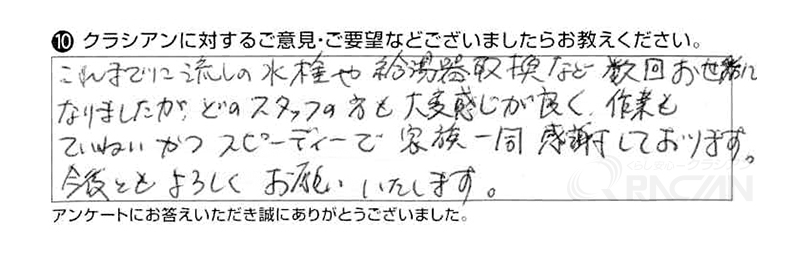 ❿ クラシアンに対するご意見・ご要望などございましたらお教えください。
これまでに流しの水栓や給湯器取換など数回お世話に
なりましたが、どのスタッフの方も大変感じが良く、作業も
ていねいかつスピーディーで家族一同感謝しております。
今後ともよろしくお願いいたします。
くらし安心クラシアン
QRACIAN
アンケートにお答えいただき誠にありがとうございました。